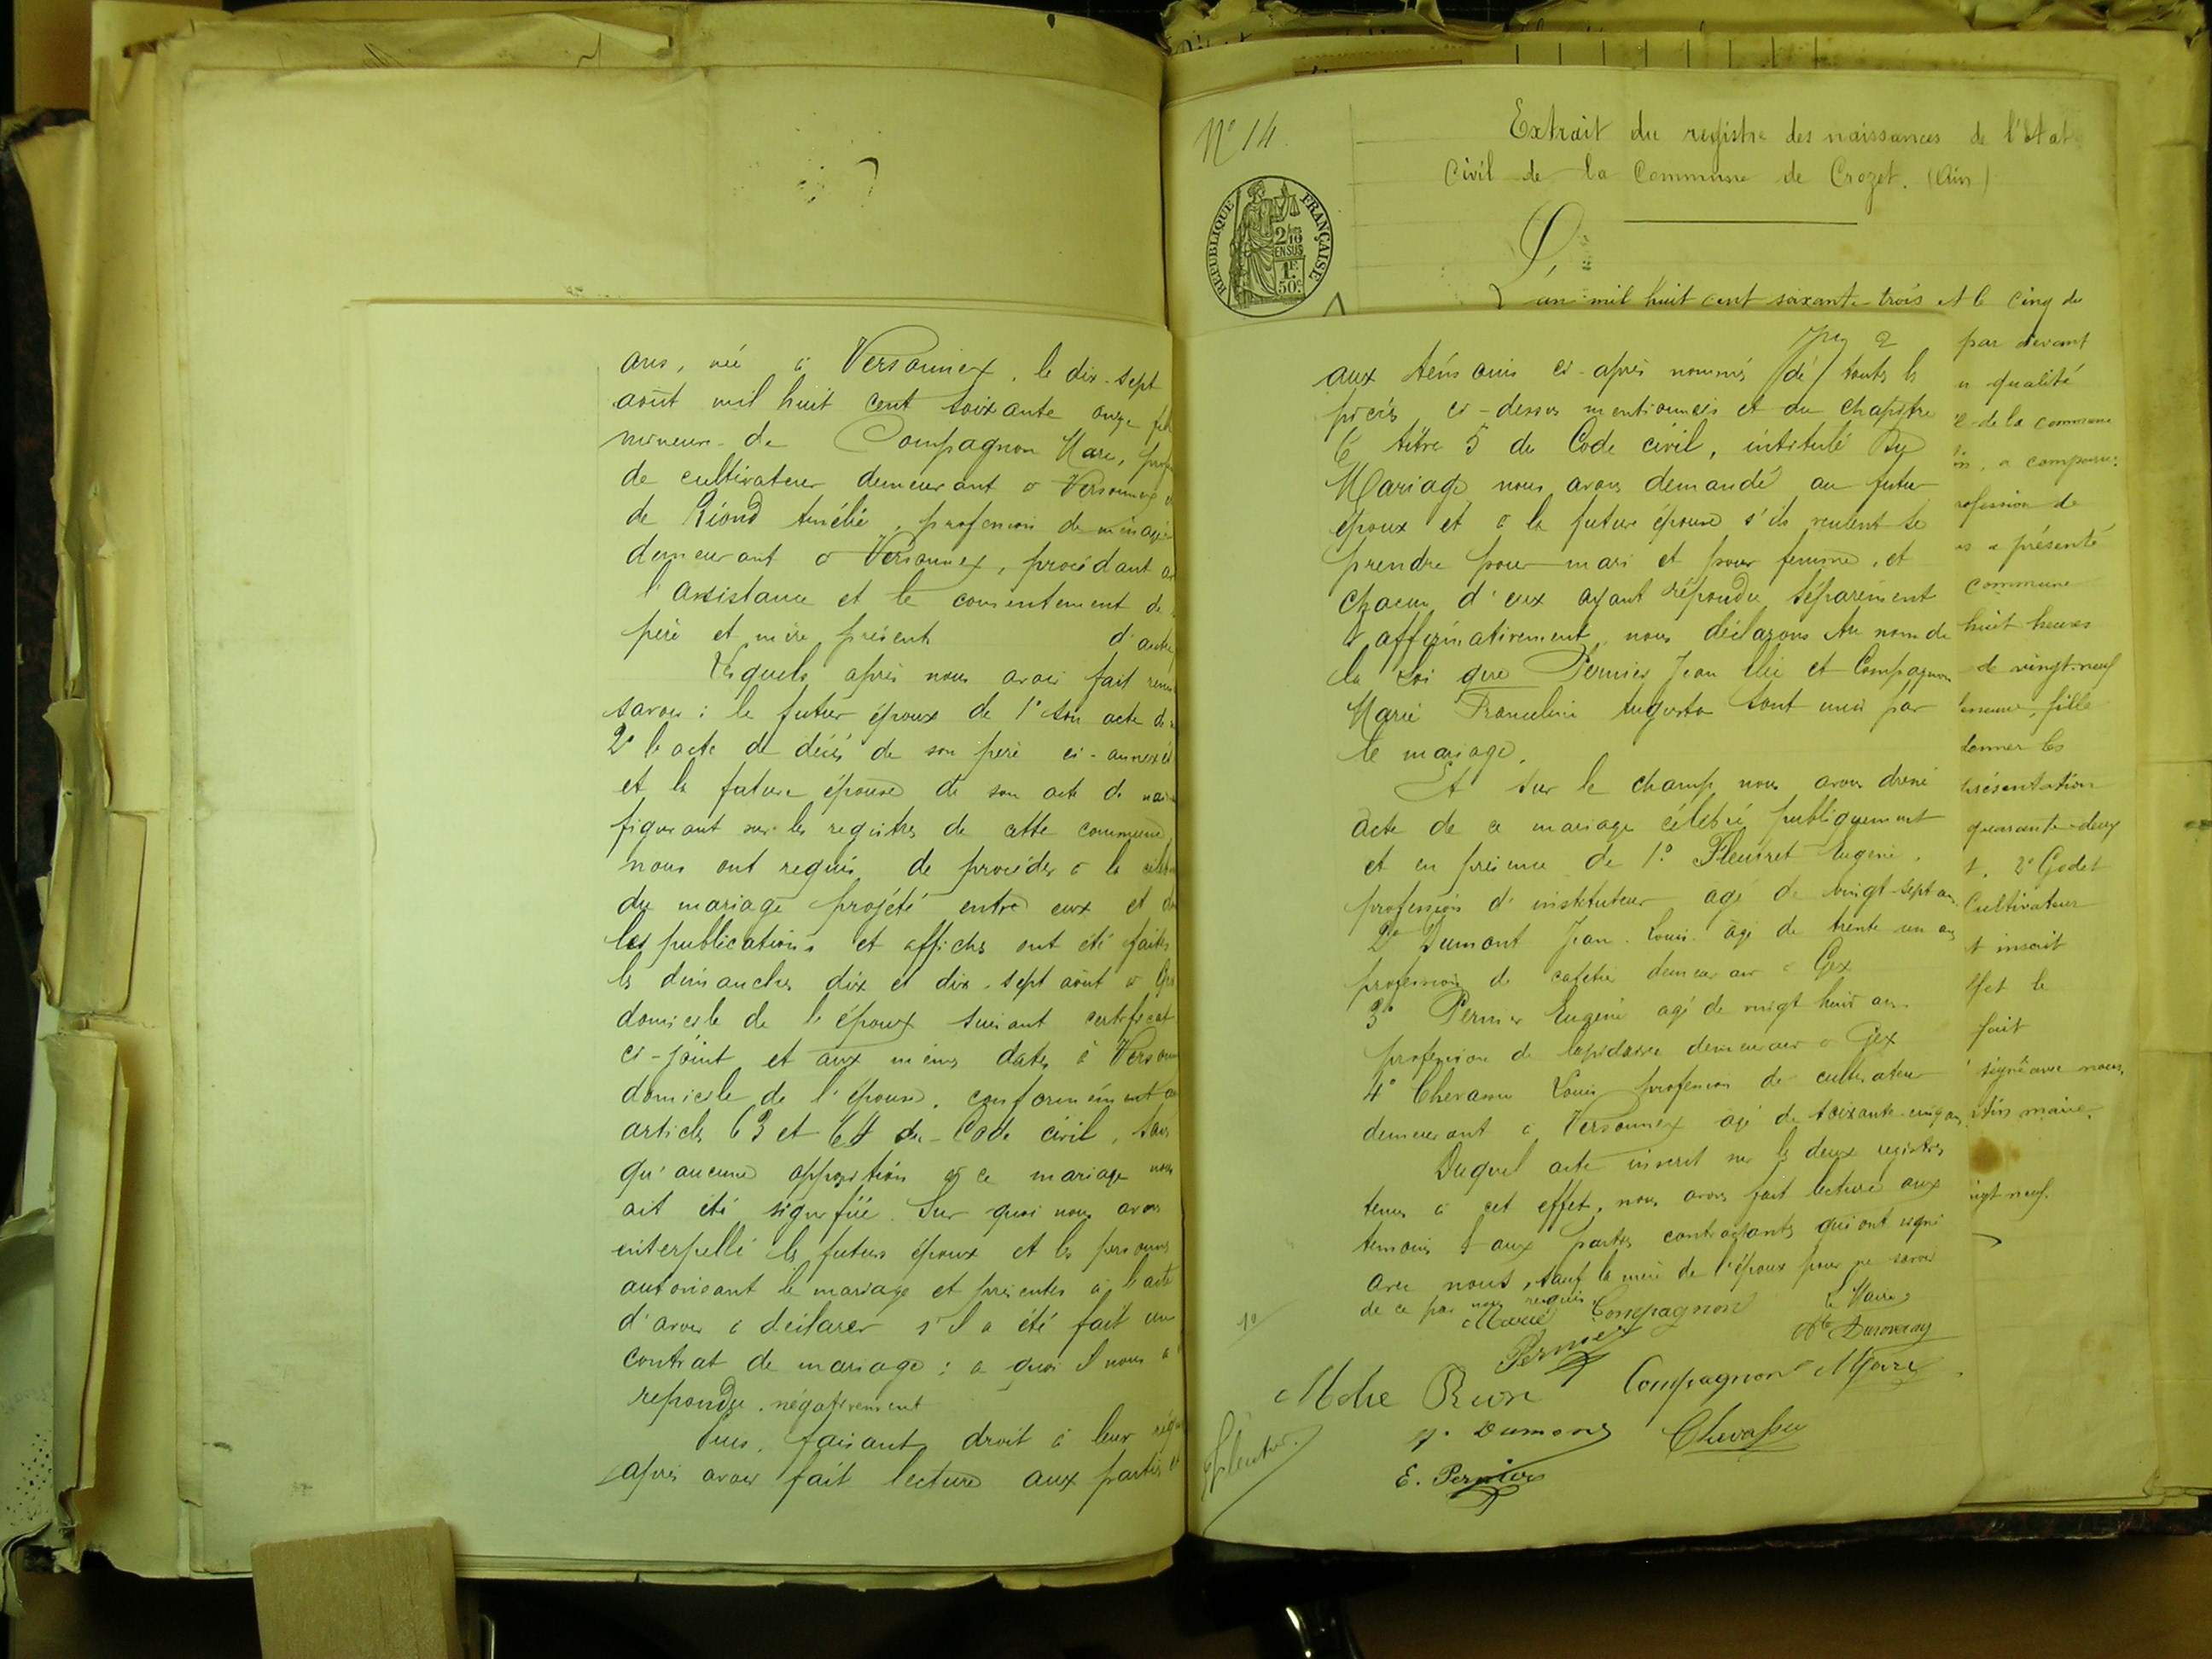 ans, née à Versonnex, le dix-sept
août mil huit cent soixante onze
mineure de Compagnon Marc,
de cultivateur demeurant à Versonnex
de Riond Amélie, profession de
demeurant à Versonnex, procédant
l'assistance et le consentement de
père et mère présents d'autre
Lesquels après nous avoir fait
savoir : le futur époux de 1° son acte de
2° le acte de décès de son père ci-annexés
et la future épouse de son acte de
figurant sur les registres de cette commune
nous ont requis de procéder à la
du mariage projeté entre eux et
les publications et affiches ont été faites
les dimanches dix et dix-sept août à Gex
domicile de l'époux suivant certificat
ci-joint et aux mêmes dates à
domicile de l'épouse, conformément
articles 63 et 64 du Code civil, sans
qu'aucune opposition à ce mariage nous
ait été signifiée. Sur quoi nous avons
interpellé les futurs époux et les personnes
autorisant le mariage et présentes à l'acte
d'avoir à déclarer s'il a été fait un
contrat de mariage : a quoi il nous a
répondu négativement
Puis, faisant droit à leur
après avoir fait lecture aux parties et
N° 14
Extrait du registre des naissances de l'état
civil de la Commune de Crozet. (Ain)
REPUBLIQUE FRANÇAISE
2/10
EN SUS
1F.
50c
L'an mil huit cent soixante-trois et le cinq du
aux témoins ci-après nommés de toutes les
pièces ci-dessus mentionnées et du chapitre
6 titre 5 du Code civil, intitulé Du
Mariage, nous avons demandé au futur
époux et à la future épouse s'ils veulent se
prendre pour mari et pour femme, et
chacun d'eux ayant répondu séparément
& affirmativement, nous déclarons Au nom de
la Loi que Pernier Jean et Compagnon
Marie Franceline Augusta sont unis par
le mariage.
Et sur le champ nous avons dressé
acte de ce mariage célébré publiquement
et en présence de 1° Fleuret Eugène,
profession d'instituteur agé de vingt-sept ans
2° Dumont Jean-Louis agé de trente un ans
profession de cafetier demeurant à Gex
3° Pernier Eugène agé de vingt huit ans
profession de lapidaire demeurant à Gex
4° Chevassu Louis profession de cultivateur
demeurant à Versonnex agé de soixante-cinq ans
Duquel acte inscrit sur les deux registres
tenus à cet effet, nous avons fait lecture aux
témoins & aux parties contractantes qui ont signé
avec nous, sauf la mère de l'époux pour ne savoir
de ce par nous requis.
Marie Compagnon
Le Maire
Pernier
Compagnon Marc
J. Dumont
Chevassu
E. Pernier
par devant
qualité
de la commune
a comparu:
profession de
a présenté
commune
huit heures
de vingt-neuf
fille
donner les
présentation
quarante-deux
2° Godet
Cultivateur
inscrit
effet le
fait
signé avec nous,
maire.
vingt neuf.